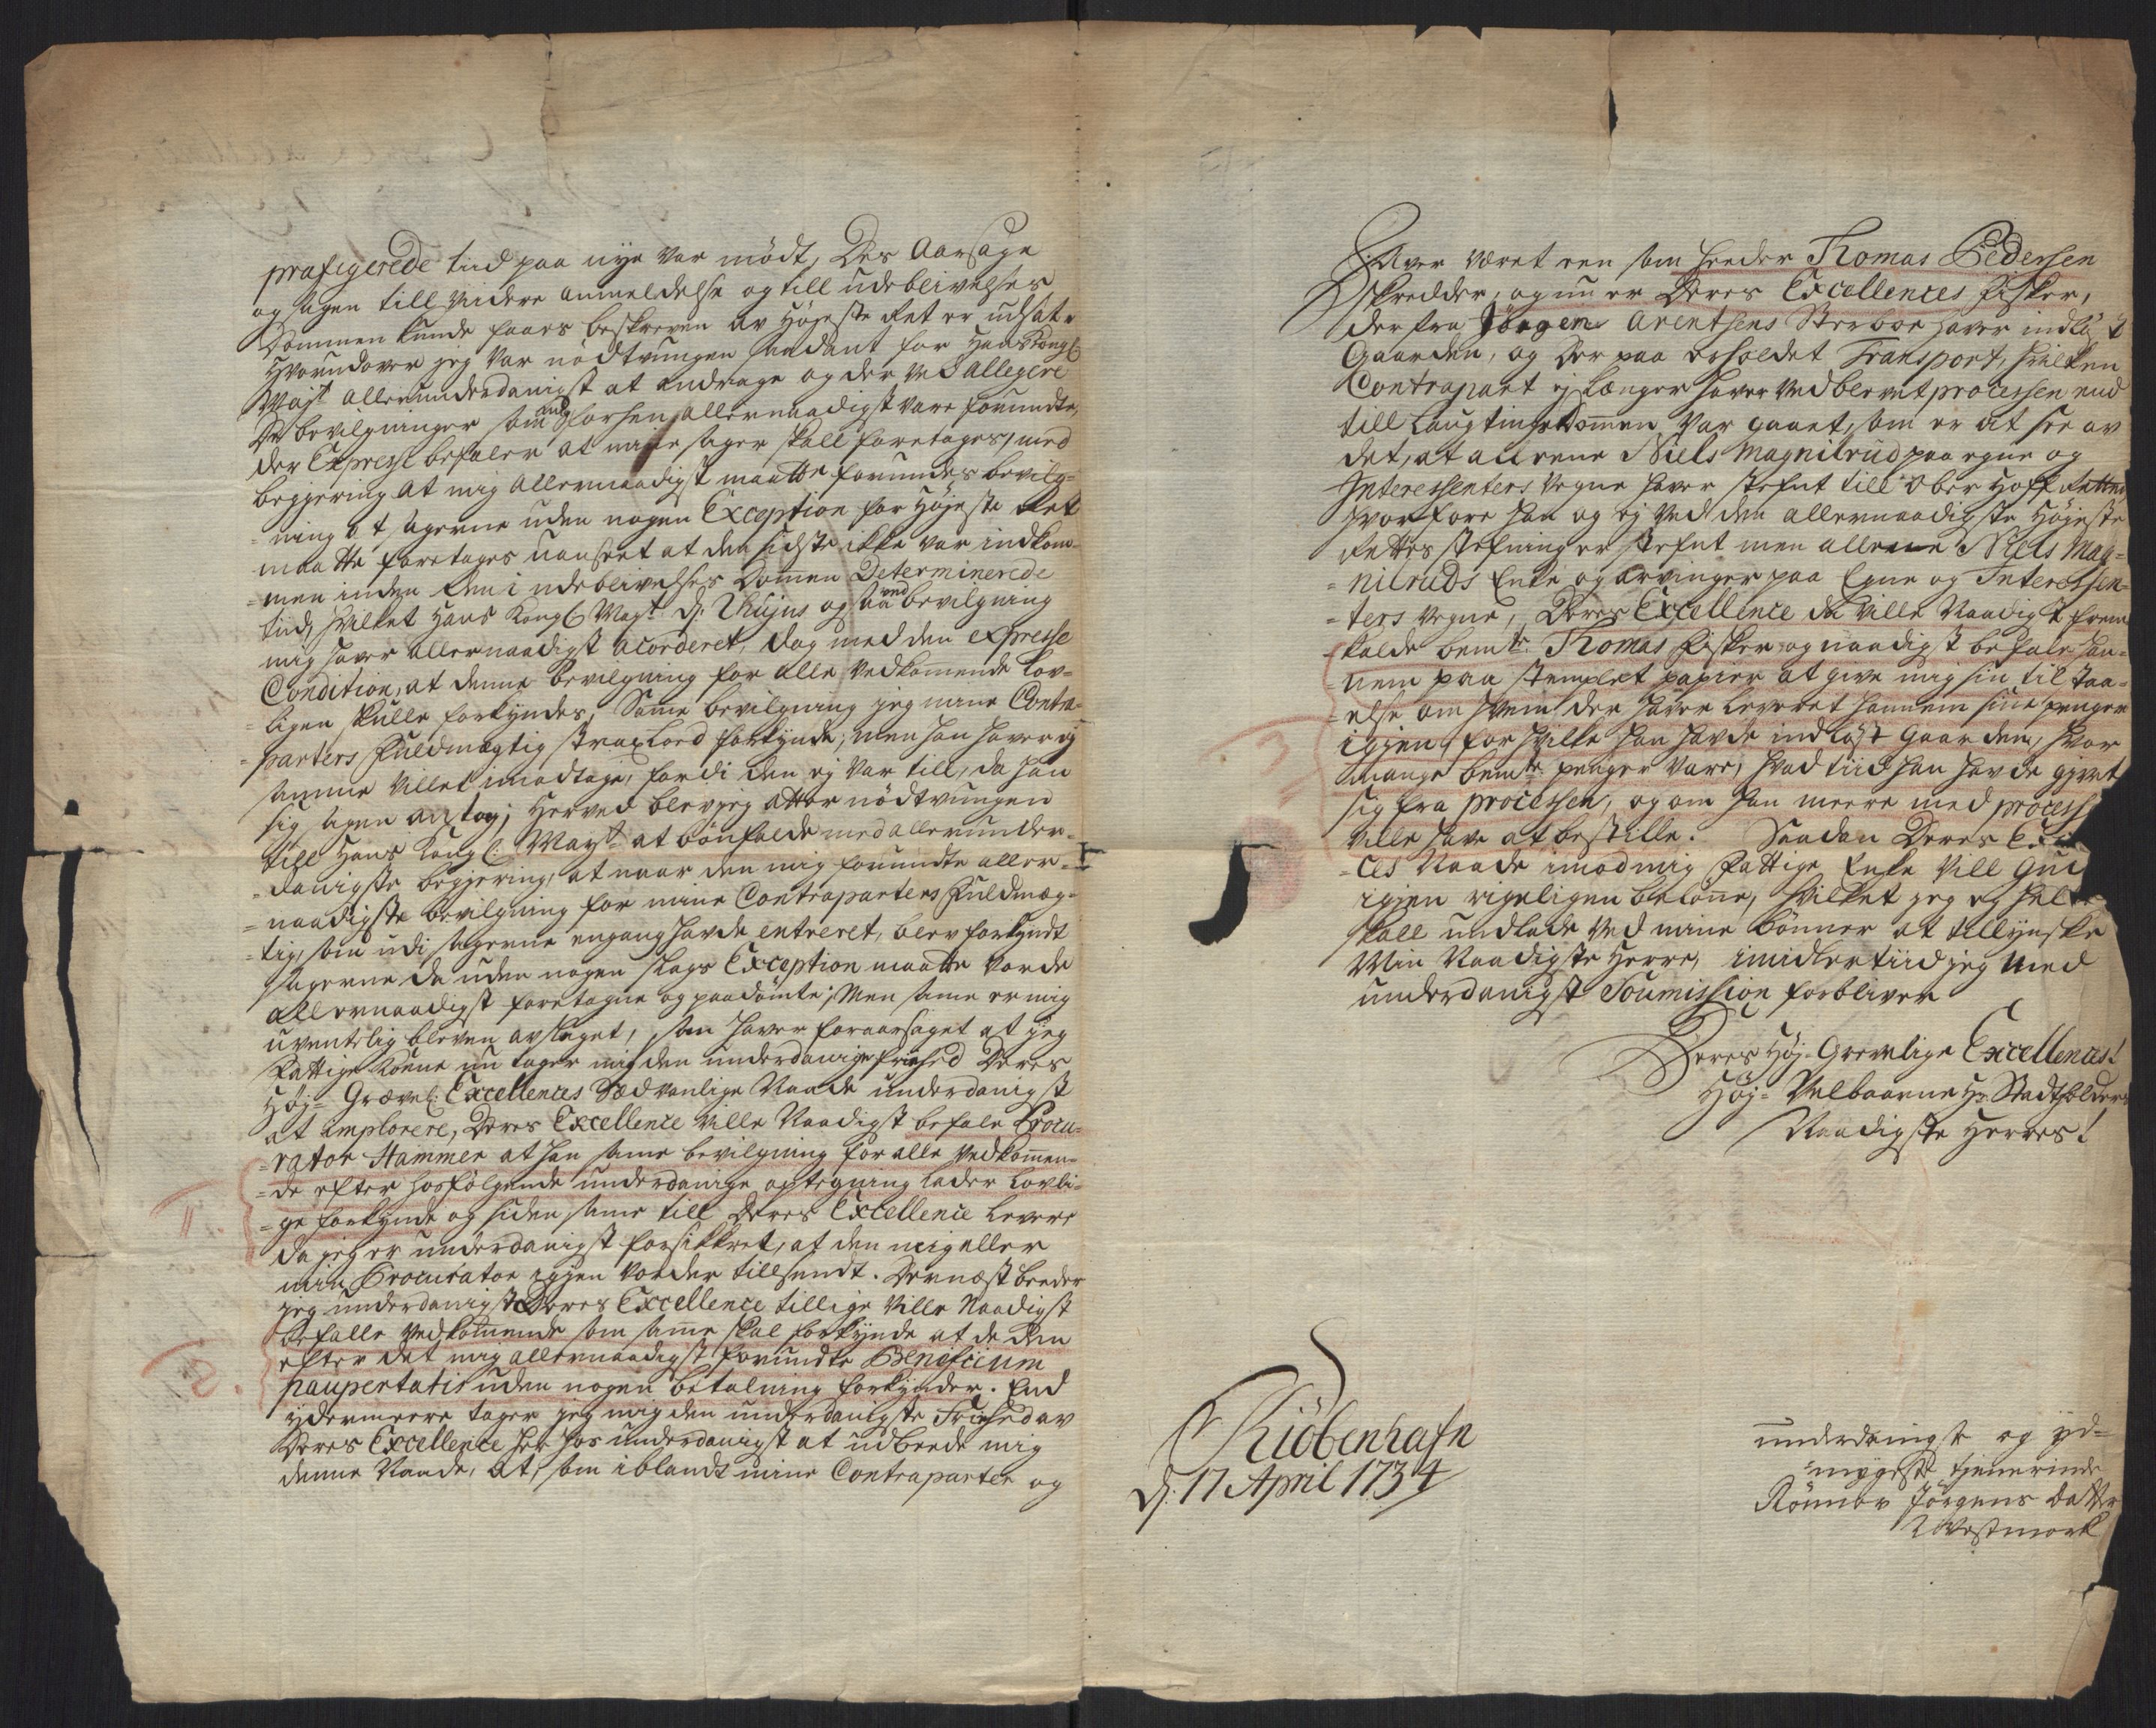 præfigerede tiid paa nye var mödt, Des Aarsage
og sagen till videre anmeldelse og till udeblivelses
Dommen kunde faaes beskreven av Höyeste Ret er udsat.
Hvorudover jeg var nödtvungen saadant for Hans Kongl
Mayt allerunderdanigst at andrage og der ved allegere
De bevilgninger som mig forhen allernaadigst vare forundte,
der Expresse befaler at mine sager skall foretages, med
begjering at mig allernaadigst maatte forundes bevilg-
=ning at sagerne uden nogen Exception for Höyeste Ret
maatte foretages uanseet at den sidste ikke var indkom-
=men inden den i udeblivelses Domen Determinerede
tiid, hvilket Hans Kongl Mayt d: hujus og saa ved bevilgning
mig haver allernaadigst acorderet, dog med den expresse
Condition, at denne bevilgning for alle vedkomende Lov-
=ligen skulle forkyndes, Same bevilgning jeg mine Contra-
=parters Fuldmægtig strax lod forkynde; men han haver ej
samme villet imodtage, fordi den ej var till, da han
sig sagen antog; Herved blev jeg atter nödtvungen
till Hans Kongl: Mayt at bönfalde med allerunder-
=danigste begjering, at naar den mig forundte aller-
=naadigste bevilgning for mine Contraparters Fuldmæg-
=tig, som udi sagerne engang havde entreret, blev forkyndt
sagerne da uden nogen slags Exception maatte vorde
allernaadigst foretagne og paadömte; Men same er mig
uventelig bleven avslaget, som haver foraarsaget at jeg
Fattige Kone nu tager mig den underdanige friehed Deres
Höj= Grævel: Excellences Sædvanlige Naade underdanigst
at implorere, Deres Excellence ville Naadigst befale Procu-
=rator Hammer at han same bevilgning for alle vedkomen-
=de efter hosfölgende underdanige optegning lader Lovli-
=ge forkynde og siden same till Deres Excellence levere
da jeg er underdanigst forsikkret, at den mig eller
min Procurator igjen vorder tillsendt. Dernæst beeder
jeg underdanigst Deres Excellence tillige ville Naadigst
befalle vedkomende som same skal forkynde at de den
efter det mig allernaadigst forundte Beneficium
paupertatis uden nogen betalning forkynder. End
ydermeere tager jeg mig den underdanigste Friehed av
Deres Excellence her hos underdanigst at udbeede mig
denne Naade, at, som iblandt mine Contraparter og
1.
2.
Haver været een som heeder Thomas Pedersen
Skredder, og nu er Deres Excellences fisker,
der fra Jörgen Arentsens Sterboe haver indlöst
Gaarden, og der paa erholdet Transport, hvilken
Contrapart ej længer haver vedblevet processen end
till Laugtings Domen var gaaet, som er at see av
det, at allene Niels Magnilrud paa egne og
Interessenters vegne haver stefnt till Ober Hoff Retten
hvorfore han og ej ved den allernaadigste Höjeste
Rettes stefning er stefnt men allene Niels Mag-
=nilruds Enke og arvinger paa Egne og Interessen-
=ters vegne, Deres Excellence da ville Naadigst frem
kalde bemte: Thomas fisker og naadigst befale han-
=nem paa stemplet papier at give mig sin til staa-
=else om hvem der haver leveret hannem sine penger
igjen, for hvilke han havde indlöst Gaarden, hvor
mange bemte penger vare, hvad tiid han havde givet
sig fra processen, og om han meere med process
ville have at bestille. Saadan Deres
=ces Naade imod mig Fattige Enke vill Gud
igjen rigeligen belönne, hvilket jeg og
skall undlade ved mine Bönner at tillynske
Min Naadigste Herre, imidlertiid jeg med
underdanigst Soumission forbliver
3
Deres Höj= Grevelige Excellences!
Höj= Velbaarne Hr Stadtholders
Naadigste Herres!
Kiöbenhafn
d: 17 April 1734
underdanigst og yd-
=mygeste tienerinde
Rönnov Jörgens datter
Westmark